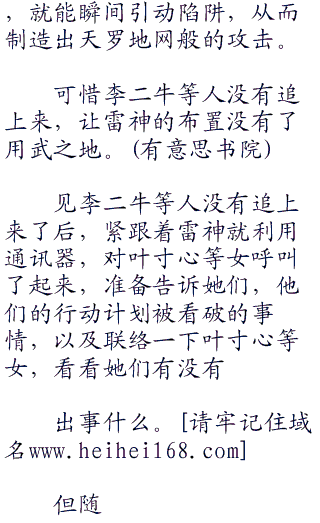 ，就能瞬间引动陷阱，从而
制造出天罗地网般的攻击。
可惜李二牛等人没有追
上来，让雷神的布置没有了
用武之地。(有意思书院)
见李二牛等人没有追上
来了后，紧跟着雷神就利用
通讯器，对叶寸心等女呼叫
了起来，准备告诉她们，他
们的行动计划被看破的事
情，以及联络一下叶寸心等
女，看看她们有没有
出事什么。[请牢记住域
名www.heihei168.com]
但随